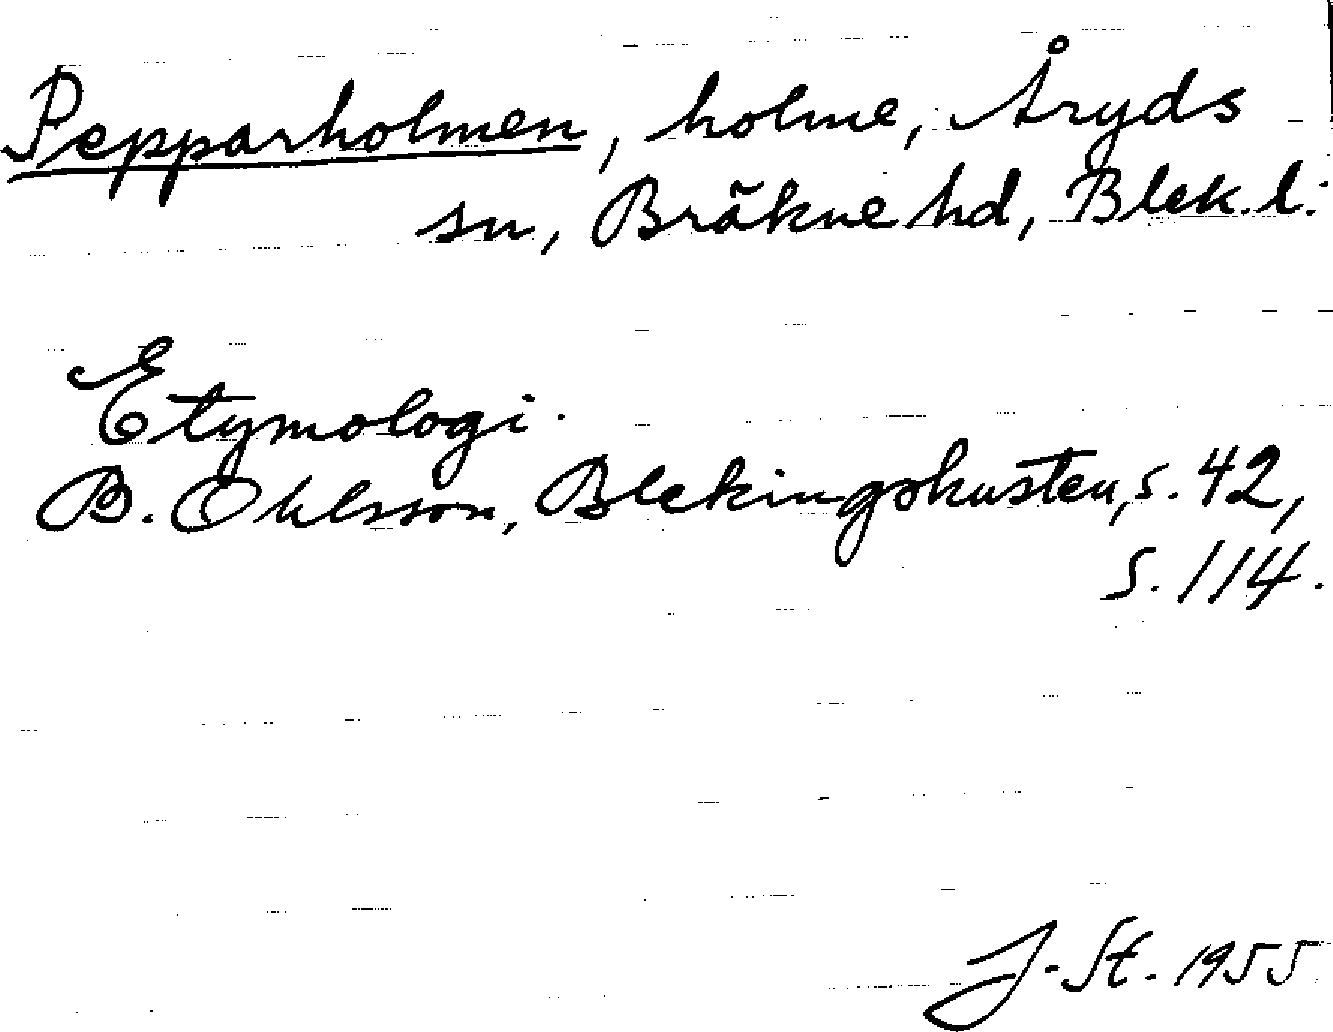 Pepparholmen, holme, Åryds
sn, Bräkne hd, Blek. l.
Etymologi.
B. Ohlsson, Blekingskusten, s. 42,
s. 114.
J. St. 1955